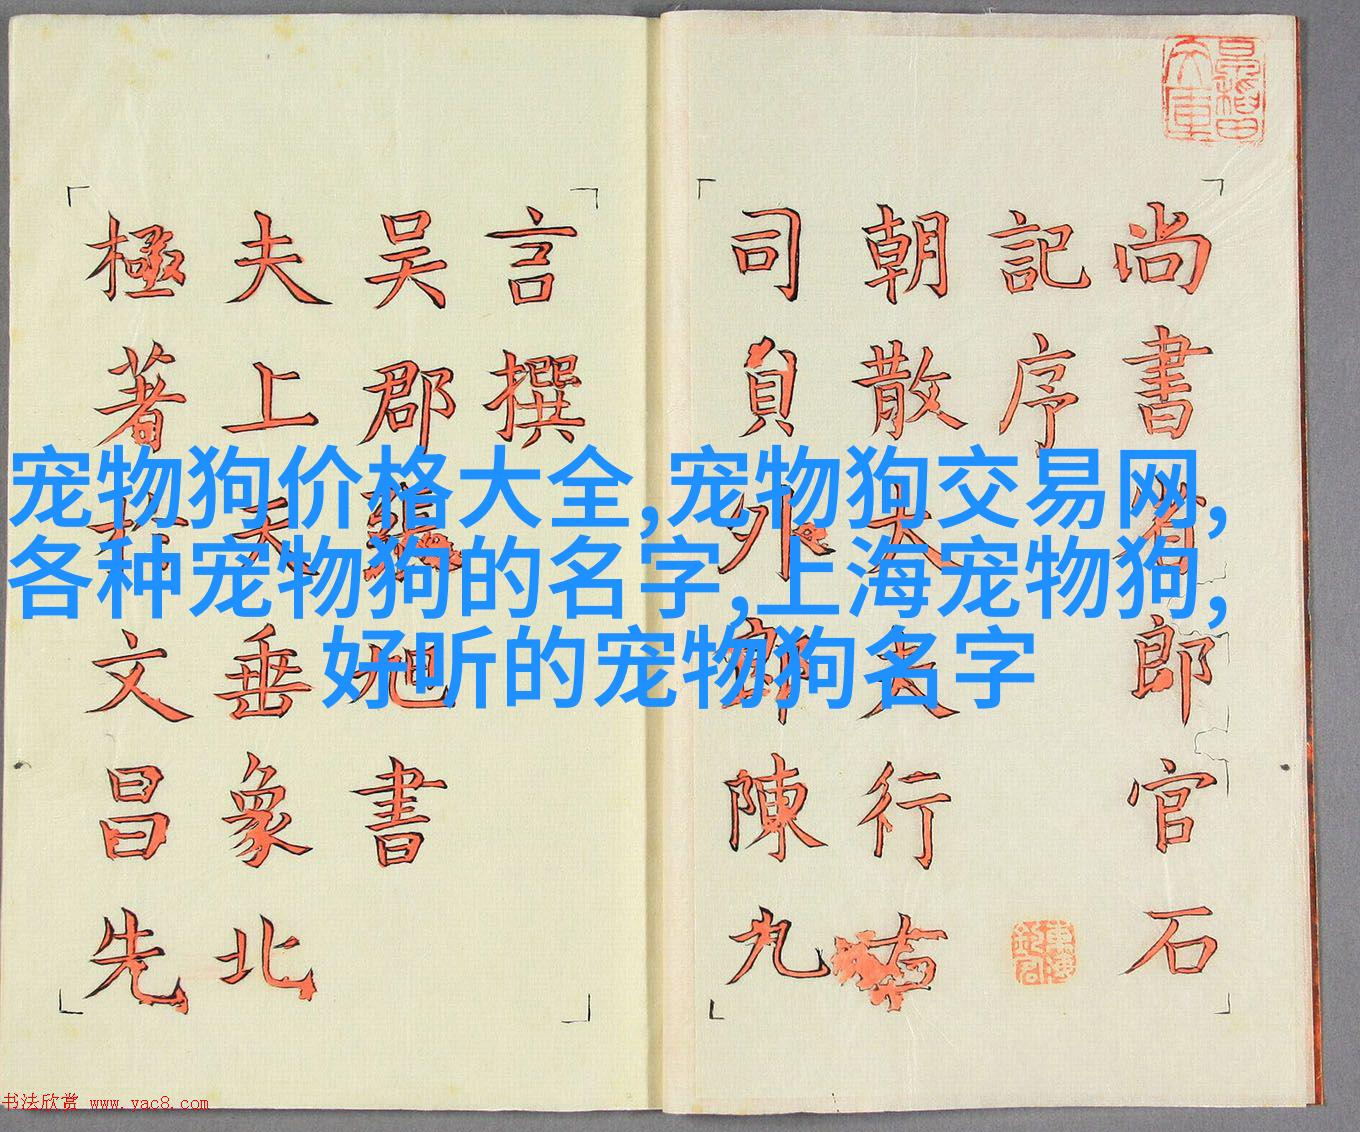 尚書省郎官石
記序
朝散大夫行右
司員外郎陳九
言撰
吴郡張旭書
夫上天垂象北
極著
文昌先
宠物狗价格大全,宠物狗交易网,
各种宠物狗的名字,上海宠物狗,
好听的宠物狗名字
书法欣赏 www.yac8.com